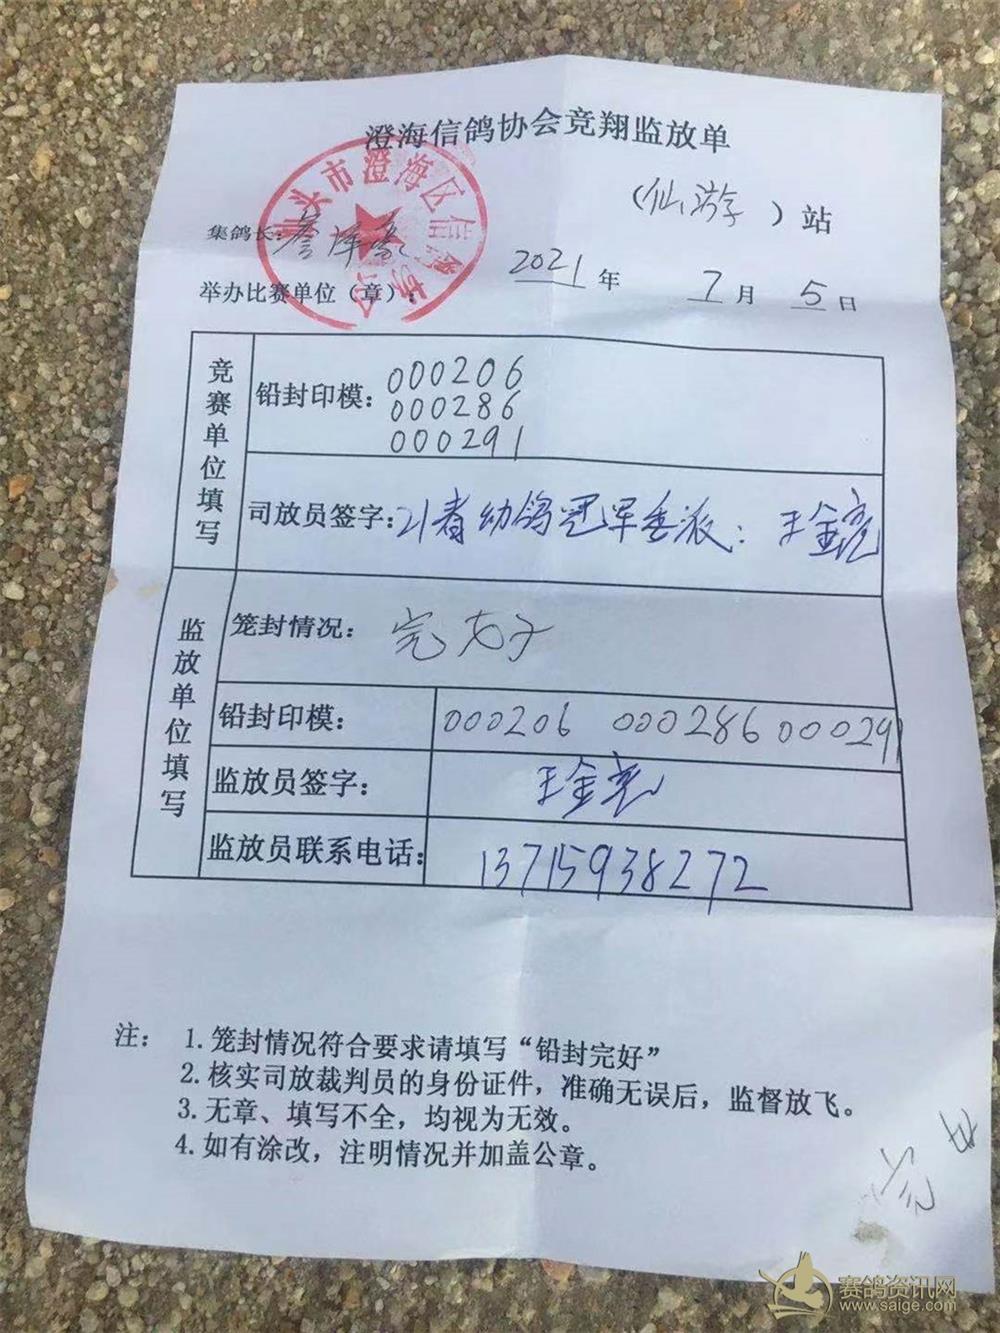 澄海信鸽协会竞翔监放单
(仙游)站
集鸽长:
举办比赛单位(章): 2021年 7月 5日
汕头市澄海区信鸽协会
竞赛单位填写
铅封印模: 000206
000286
000291
司放员签字: 21省幼鸽冠军委派: 王金亮
监放单位填写
笼封情况: 完好
铅封印模: 000206 000286 000291
监放员签字: 王金亮
监放员联系电话: 13715938272
注: 1.笼封情况符合要求请填写“铅封完好”
2.核实司放裁判员的身份证件，准确无误后，监督放飞。
3.无章、填写不全，均视为无效。
4.如有涂改，注明情况并加盖公章。
赛鸽资讯网
www.saige.com